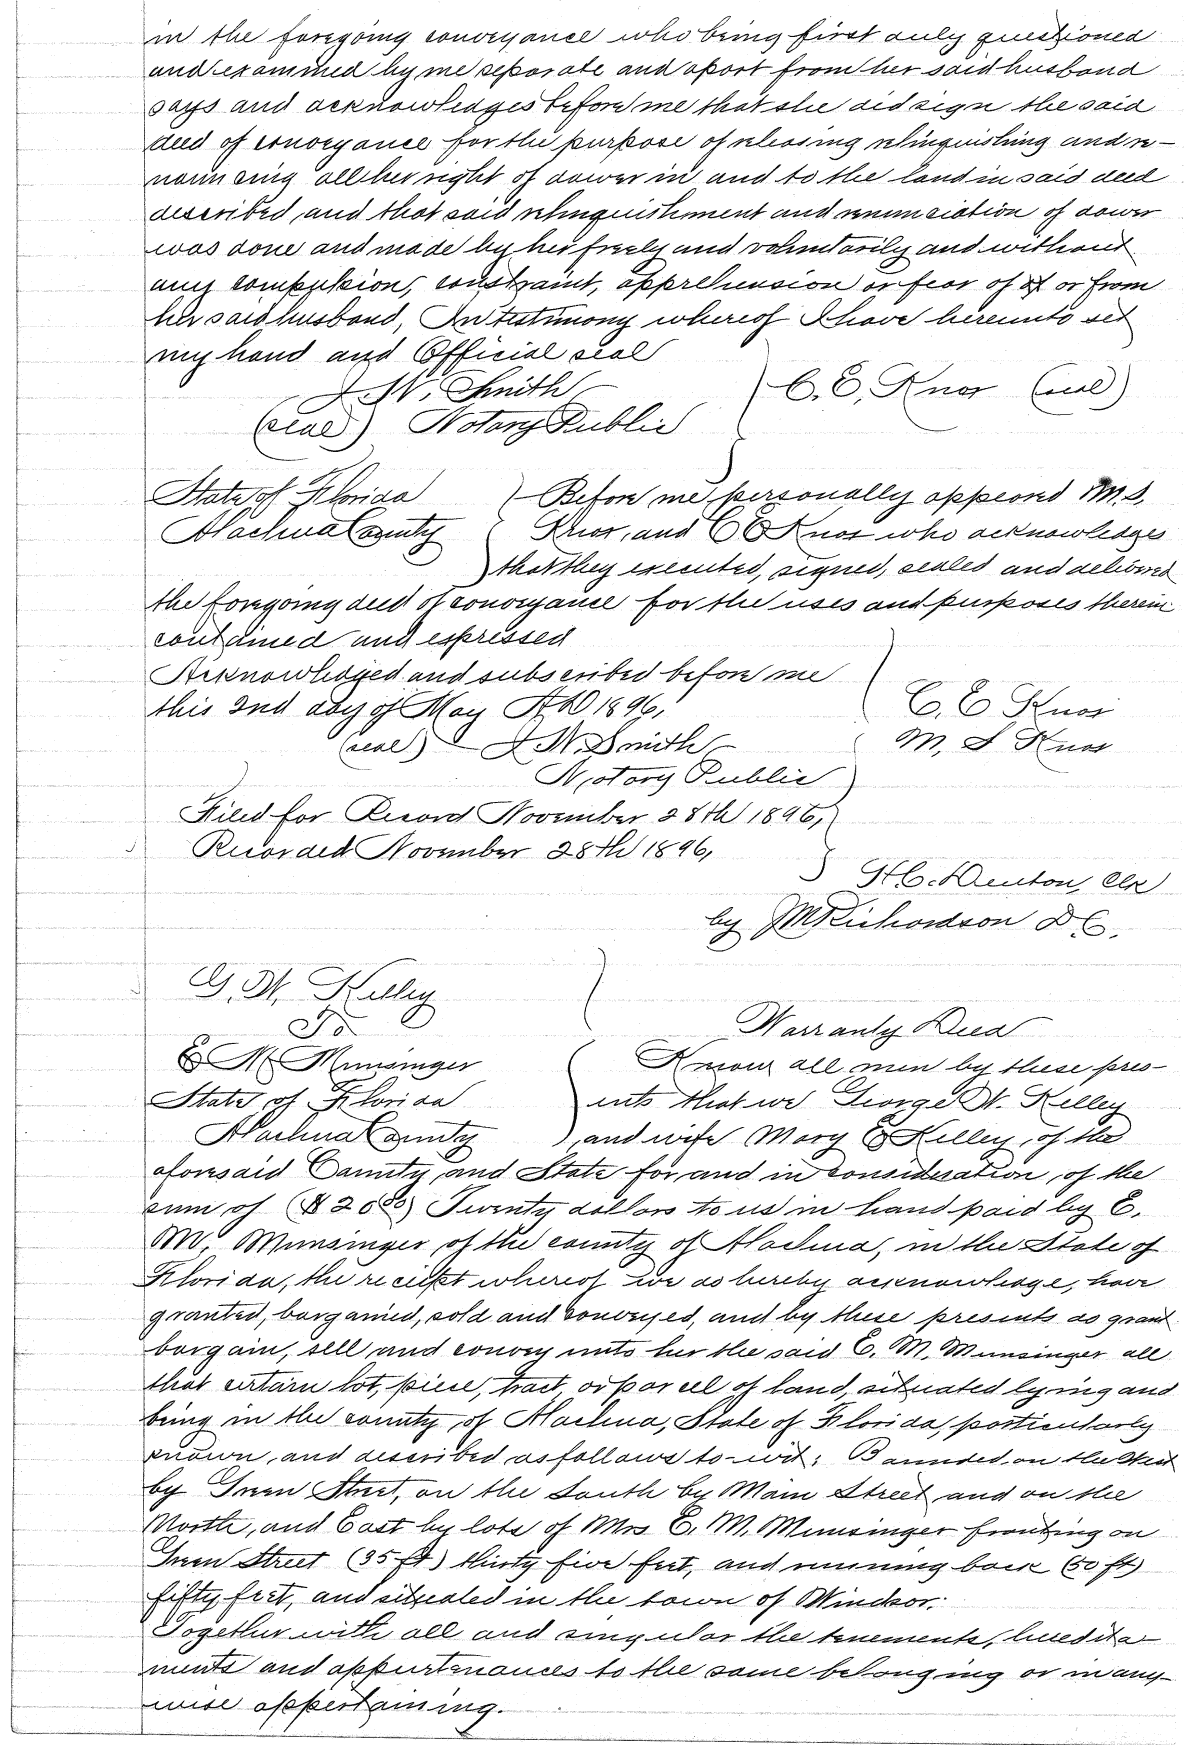 in the foregoing conveyance who being first duly questioned
and examined by me separate and apart from her said husband
says and acknowledges before me that she did sign the said
deed of conveyance for the purpose of releasing relinquishing and re-
nouncing all her right of dower in and to the land in said deed
described, and that said relinquishment and renunciation of dower
was done and made by her freely and voluntarily and without
any compulsion, constraint, apprehension or fear of of or from
her said husband, In testimony whereof I have hereunto set
my hand and Official seal
J. W. Smith C. E. Knox (seal)
(seal) Notary Public
State of Florida Before me personally appeared M. S.
Alachua County Knox, and C E Knox who acknowledges
that they executed, signed, sealed and delivered
the foregoing deed of conveyance for the uses and purposes therein
contained and expressed
Acknowledged and subscribed before me
this 2nd day of May A D 1896, C. E Knox
(seal) J. W. Smith M. S Knox
Notary Public
Filed for Record November 28th 1896,
Recorded November 28th 1896,
H. C. Denton, Clk
by J M Richardson D C.
G. W. Kelley
To Warranty Deed
E M Munsinger Know all men by these pres-
State of Florida ents that we George W. Kelley
Alachua County and wife Mary E Kelley, of the
aforesaid County and State for and in consideration, of the
sum, of ($20 00) Twenty dollars to us in hand paid by E.
M. Munsinger, of the county of Alachua, in the State of
Florida, the receipt whereof we do hereby acknowledge, have
granted, bargained, sold and conveyed, and by these presents do grant
bargain, sell, and convey unto her the said E. M. Munsinger all
that certain lot, piece, tract, or parcel of land, situated lying and
being in the county, of Alachua, State of Florida, particularly
known, and described as follows to-wit: Bounded on the West
by Green Street, on the South by Main Street and on the
North, and East by lots of Mrs E. M. Munsinger fronting on
Green Street (35 ft) thirty five feet, and running back (50 ft)
fifty feet, and situated in the town of Windsor.
Together with all and singular the tenements, heredita-
ments and appurtenances to the same belonging or in any-
wise appertaining.